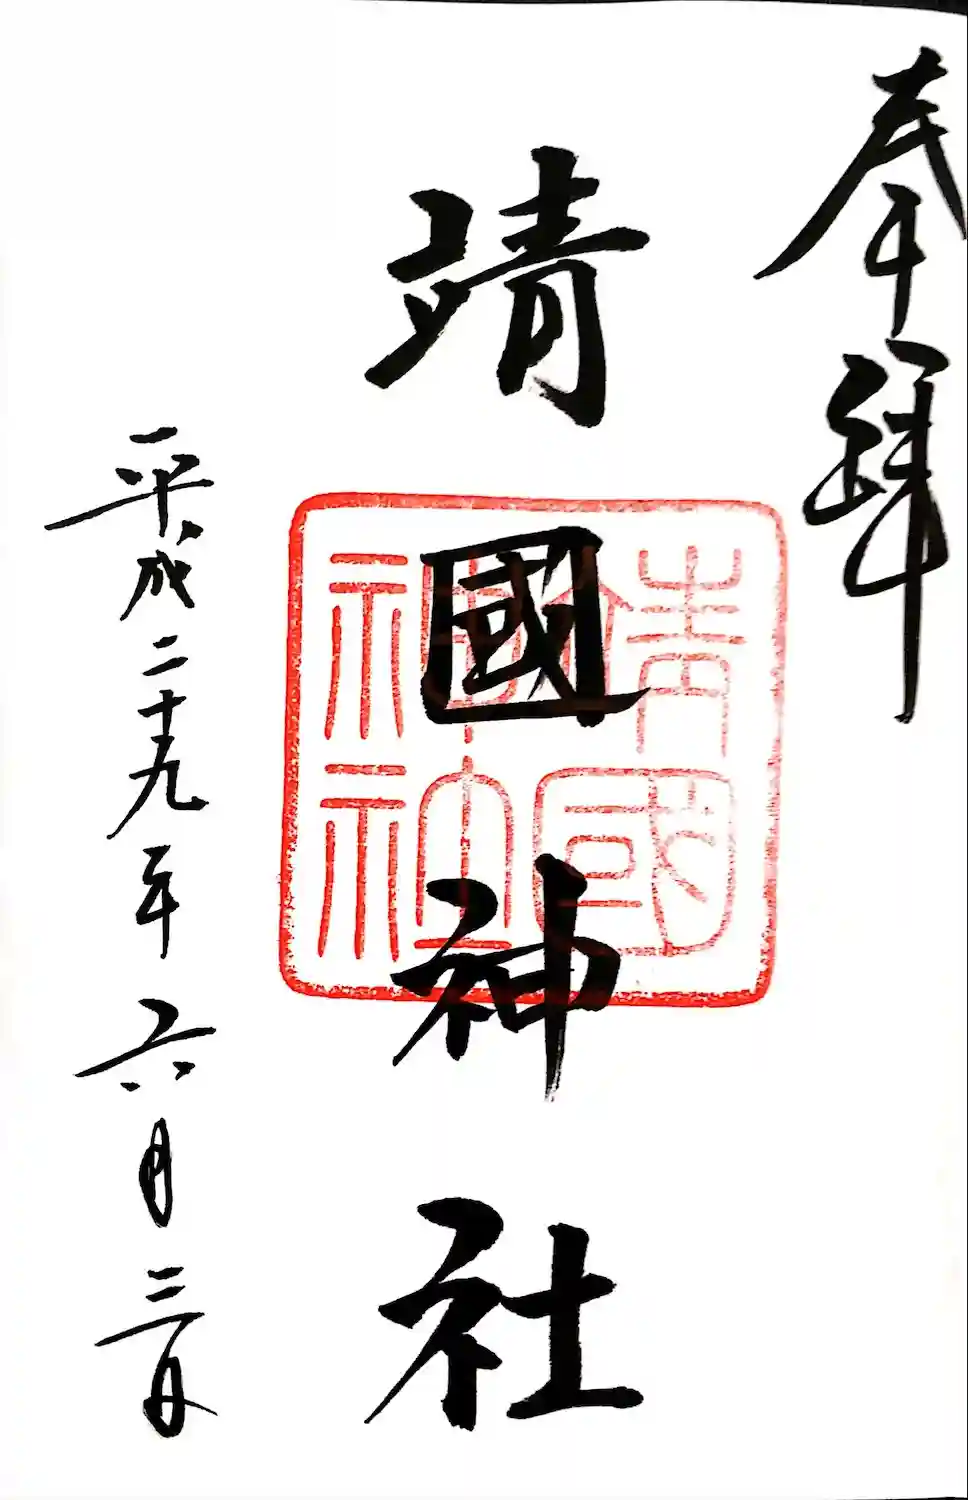 奉拝
靖國神社
靖國
神社
平成二十九年六月三日